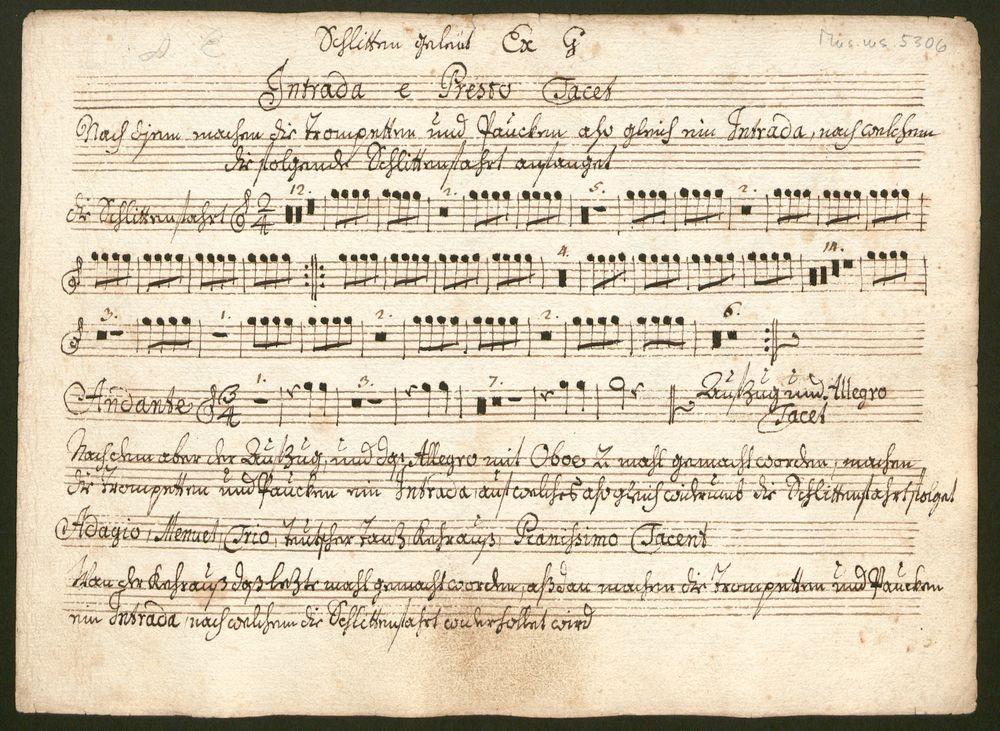 D E Schlitten geleüt Ex G Mus. ms. 5306
Intrada e Presto Tacet
Nach disem machen die Trompetten und Paucken also gleich ein Intrada, nach welchem
die folgende Schlittenfahrt anfanget
die Schlittenfahrt 2/4 12. 2. 5. 2.
4. 14.
3. 1. 2. 2. 6.
Andante 3/4 1. 3. 7. Aufzug und Allegro
Tacet
Nachdem aber der Aufzug, und das Allegro mit Oboe 2 mahl gemacht worden, machen
die Trompetten und Paucken ein Intrada auf welches also gleich widerumb die Schlittenfahrt folget
Adagio, Menuet, Trio, teutscher tantz, Kehrauß, Pianissimo Tacent
Wan der Kehrauß daß letzte mahl gemacht worden, alsdan machen die Trompetten und Paucken
ein Intrada, nach welchem die Schlittenfahrt widerhollet wird